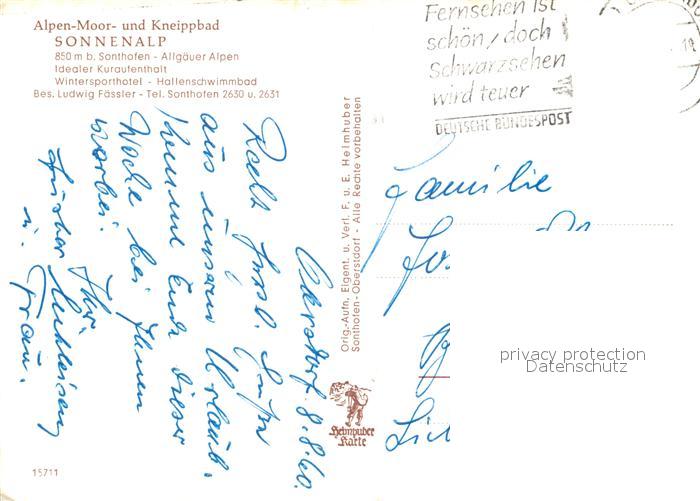 Alpen-Moor- und Kneippbad
SONNENALP
850 m b. Sonthofen - Allgäuer Alpen
Idealer Kuraufenthalt
Wintersporthotel - Hallenschwimmbad
Bes. Ludwig Fässler - Tel. Sonthofen 2630 u. 2631
Fernsehen ist
schön, doch
Schwarzsehen
wird teuer
DEUTSCHE BUNDESPOST
8.8.60.
Recht herzl. Grüße
aus unserem Urlaub.
Komme Ende dieser
Woche bei Ihnen
vorbei.
Ihr
u. Frau.
Orig.-Aufn. Eigent. u. Verl. F. u. E. Heimhuber
Sonthofen-Oberstdorf - Alle Rechte vorbehalten
Heimhuber
Karte
Familie
privacy protection
Datenschutz
15711